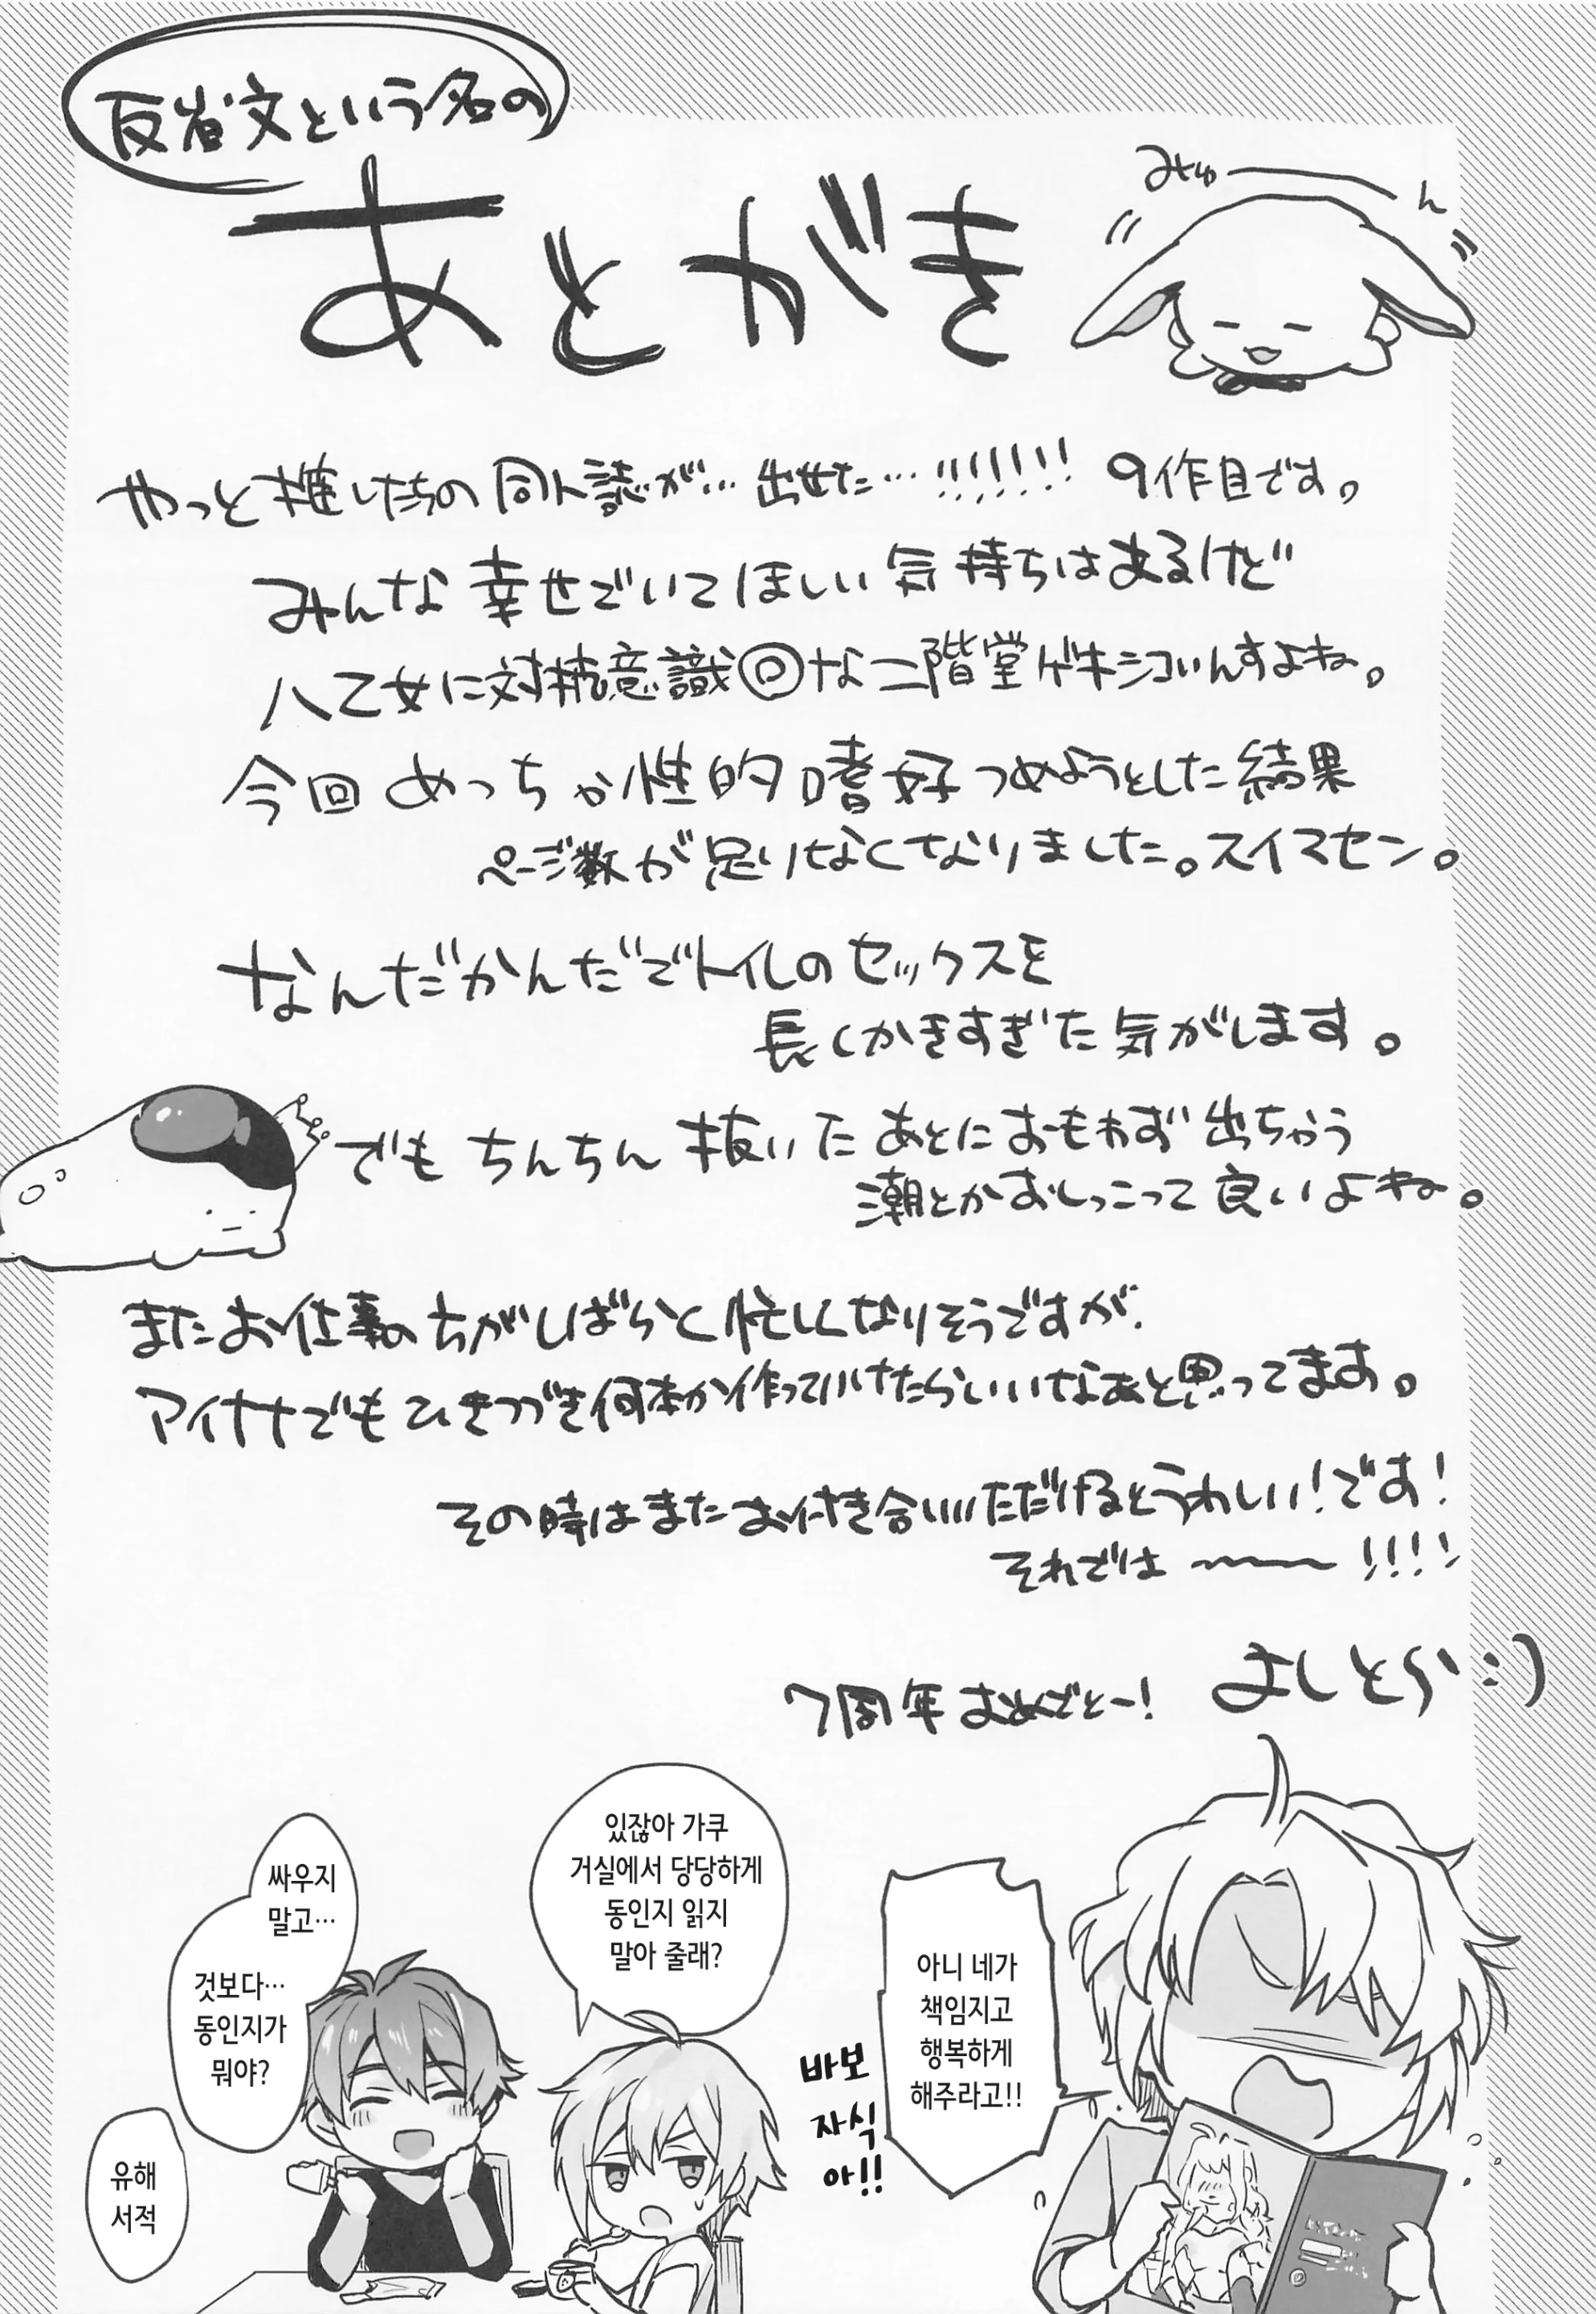 反省文という名の
あとがき
みゅーーん
やっと推したちの同人誌が…出せた…!!!!!!! 9作目です。
みんな幸せでいてほしい気持ちはあるけど
八乙女に対抗意識◎な二階堂ゲキシコいんすよね。
今回めっちゃ性的嗜好つめようとした結果
ページ数が足りなくなりました。スイマセン。
なんだかんだでトイレのセックスを
長くかきすぎた気がします。
でもちんちん抜いたあとにおもわず出ちゃう
潮とかおしっこって良いよね。
またお仕事のちがしばらく忙しくなりそうですが、
アイナナでもひきつづき何本か作っていけたらいいなあと思ってます。
その時はまたお付き合いいただけるとうれしい!です!
それでは〜〜〜!!!!
7周年おめでとー! よしとら:)
아니 네가
책임지고
행복하게
해주라고!!
바보
자식
아!!
있잖아 가쿠
거실에서 당당하게
동인지 읽지
말아 줄래?
싸우지
말고…
것보다…
동인지가
뭐야?
유해
서적